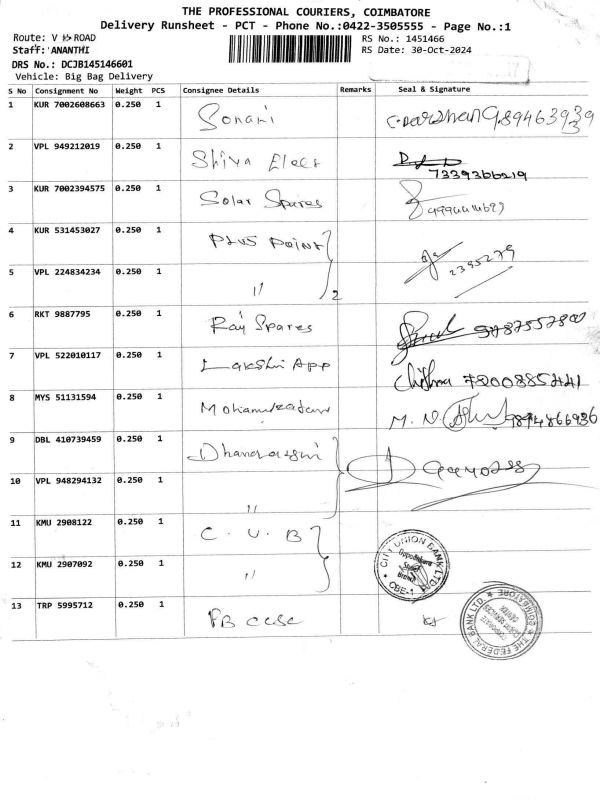 THE PROFESSIONAL COURIERS, COIMBATORE
Delivery Runsheet - PCT - Phone No.:0422-3505555 - Page No.:1
Route: V ROAD
RS No.: 1451466
Staff: ANANTHI
RS Date: 30-Oct-2024
DRS No.: DCJB145146601
Vehicle: Big Bag Delivery
S No Consignment No Weight PCS Consignee Details Remarks Seal & Signature
1 KUR 7002608663 0.250 1 Sonani C.Darshan 989463939
2 VPL 949212019 0.250 1 Shiva Elect
7339366219
3 KUR 7002394575 0.250 1 Solar Spares
4 KUR 531453027 0.250 1 Plus Point
2395279
5 VPL 224834234 0.250 1 11 2
6 RKT 9887795 0.250 1 Raj Spares 9787557800
7 VPL 522010117 0.250 1 Lakshmi App 7200885441
8 MYS 51131594 0.250 1 M. N 9894866936
9 DBL 410739459 0.250 1
10 VPL 948294132 0.250 1 11
11 KMU 2908122 0.250 1 C. U. B
CITY UNION BANK LTD. CBE-1
12 KMU 2907092 0.250 1 11
13 TRP 5995712 0.250 1 FB CCSC
THE FEDERAL BANK LTD. COIMBATORE